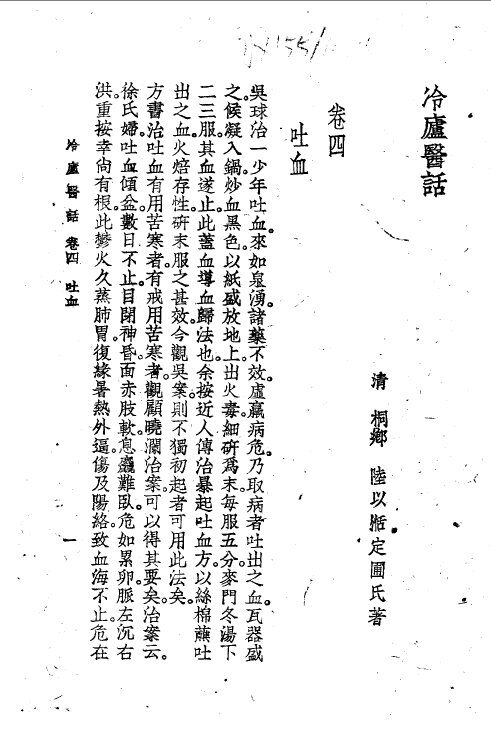 冷廬醫話
清 桐鄉 陸以湉定圃氏著
卷四
吐血
吳球治一少年吐血。來如泉湧。諸藥不效。虛羸病危。乃取病者吐出之血。瓦器盛
之。候凝入鍋炒血黑色。以紙盛放地上出火毒。細硏爲末。每服五分。麥門冬湯下。
二三服。其血遂止。此蓋血導血歸法也。余按近人傳治暴起吐血方。以絲棉蘸吐
出之血。火焙存性。硏末服之甚效。今觀吳案。則不獨初起者可用此法矣。
方書治吐血有用苦寒者。有戒用苦寒者。觀顧曉瀾治案。可以得其要矣。治案云。
徐氏婦吐血傾盆。數日不止。目閉神昏。面赤肢軟。息麤難臥。危如累卵。脈左沉右
洪。重按幸尙有根。此鬱火久蒸肺胃。復緣暑熱外逼。傷及陽絡。致血海不止。危在
冷廬醫話 卷四 吐血 一